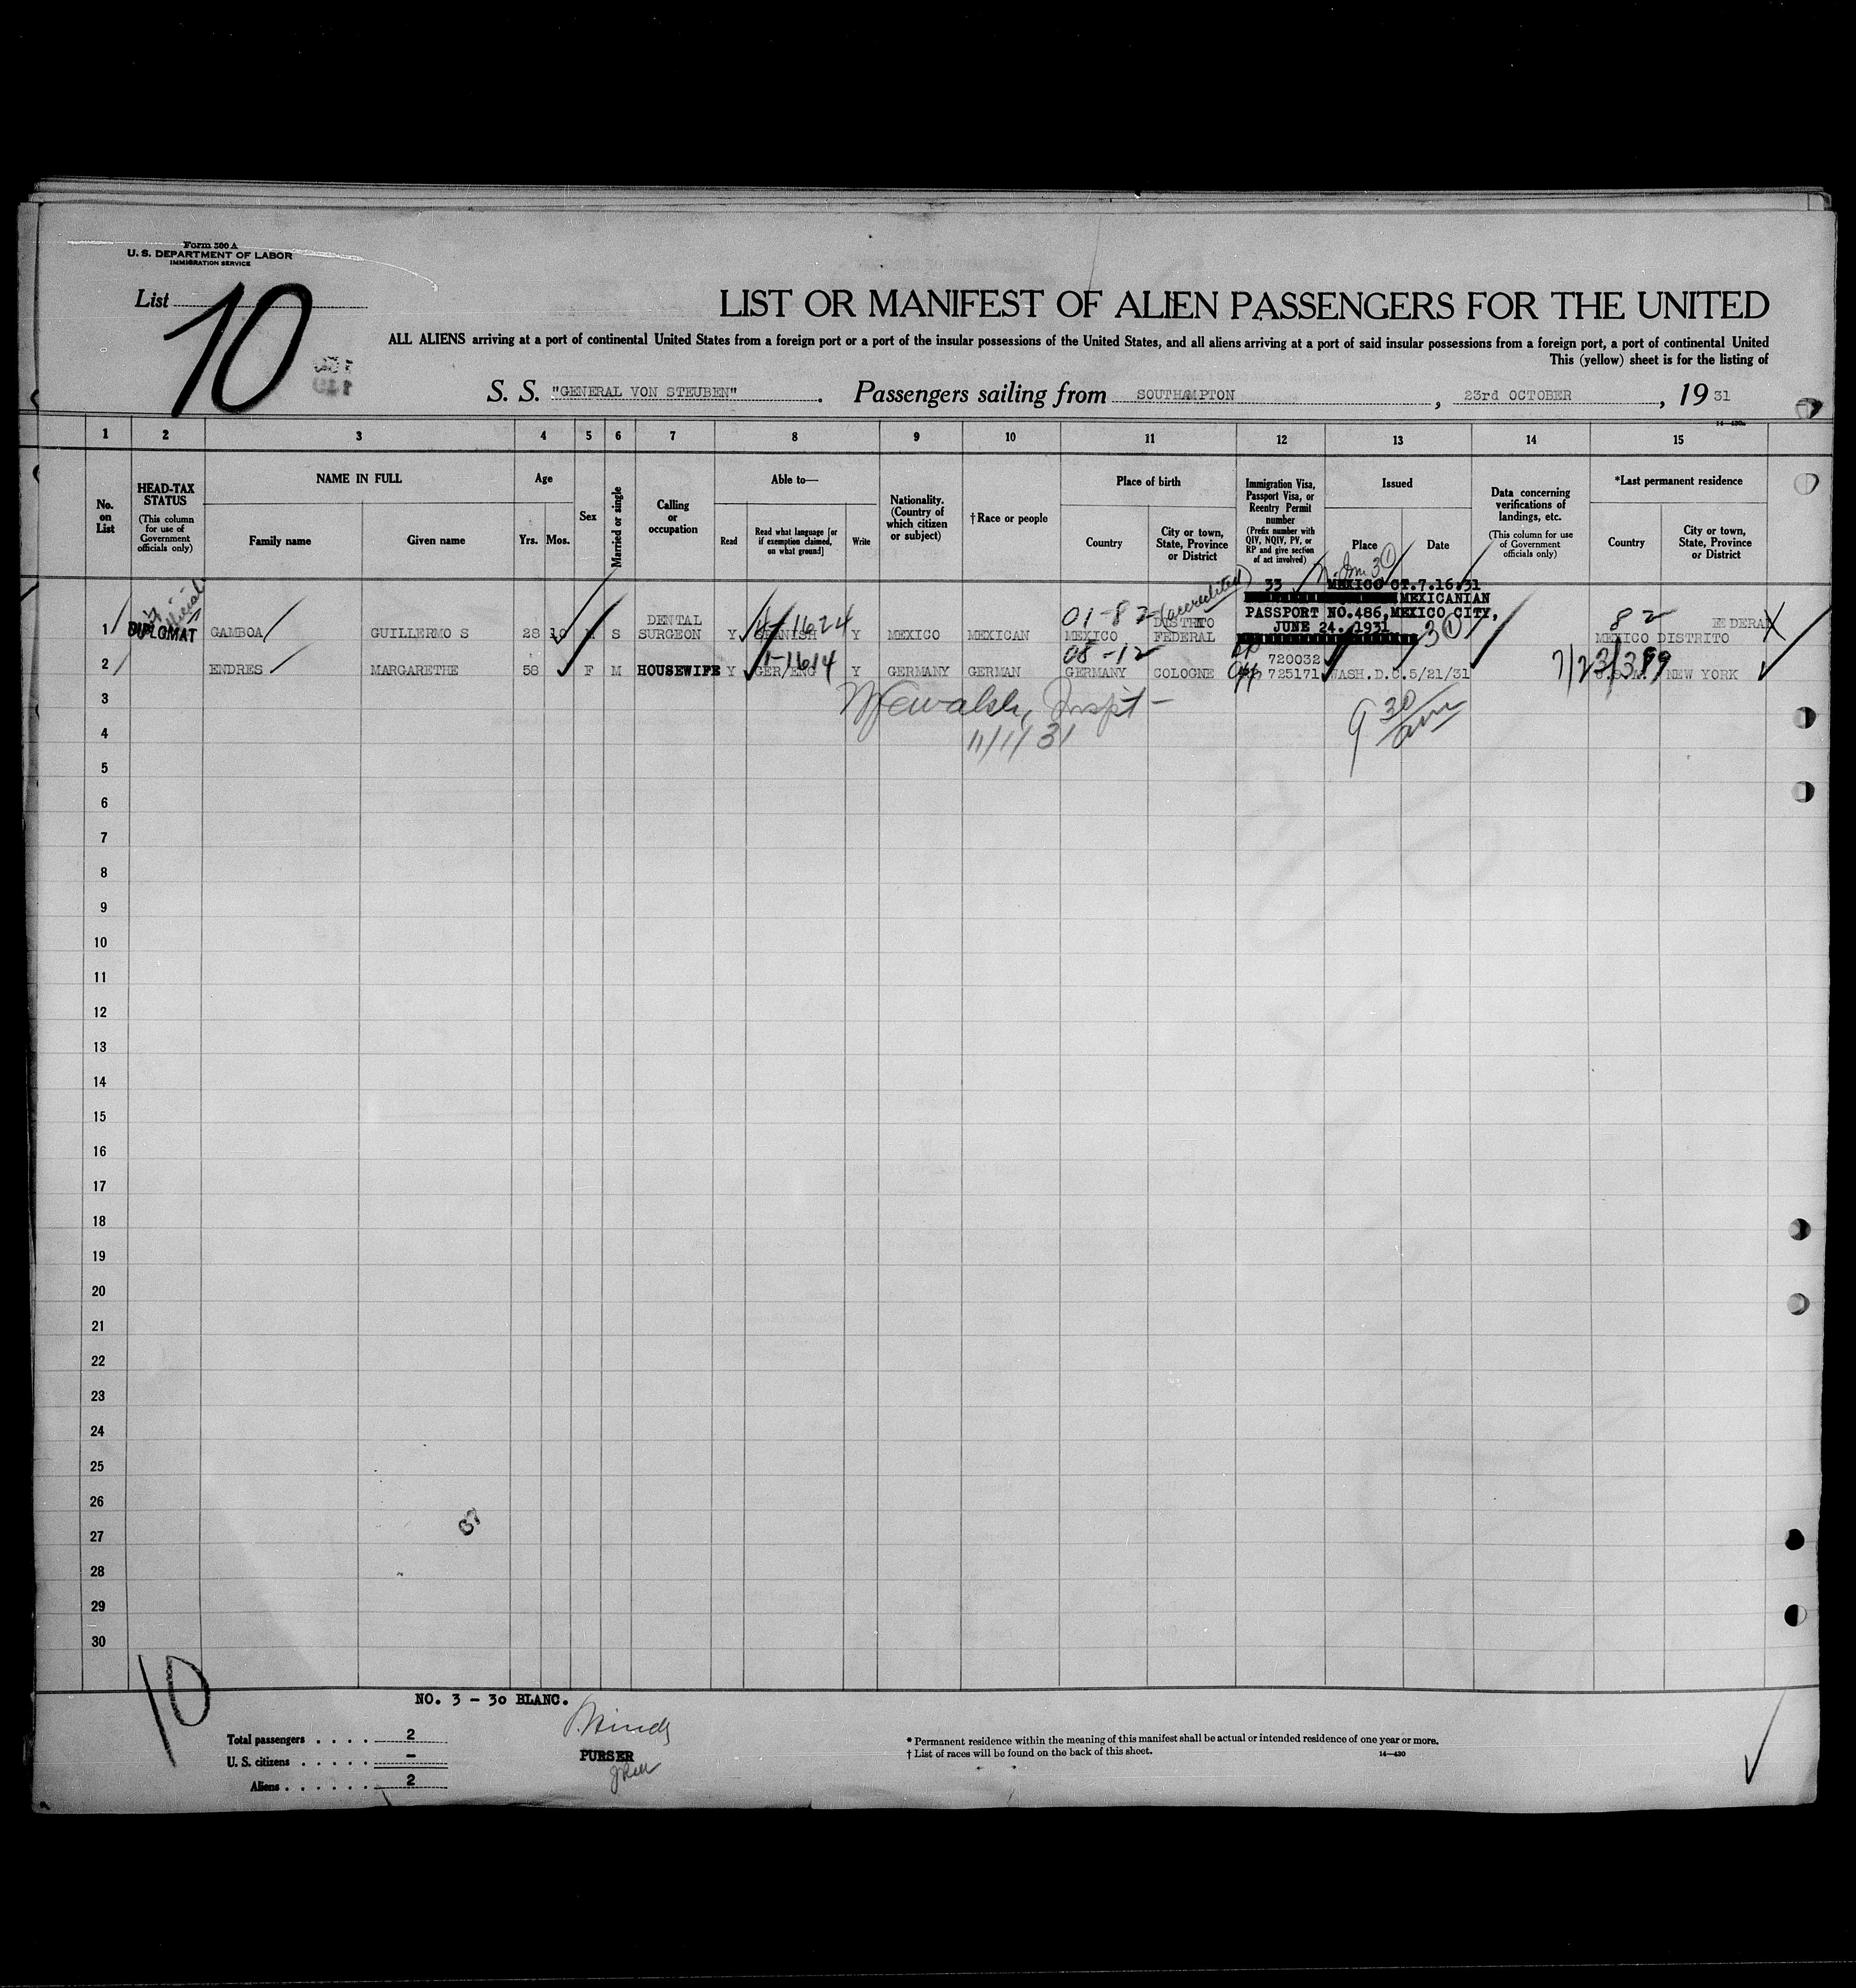 Form 500 A
U. S. DEPARTMENT OF LABOR
IMMIGRATION SERVICE
List 10
LIST OR MANIFEST OF ALIEN PASSENGERS FOR THE UNITED
ALL ALIENS arriving at a port of continental United States from a foreign port or a port of the insular possessions of the United States, and all aliens arriving at a port of said insular possessions from a foreign port, a port of continental United
This (yellow) sheet is for the listing of
S. S. "GENERAL VON STEUBEN" . Passengers sailing from SOUTHAMPTON , 23rd OCTOBER , 19 31
14-430a
1 2 3 4 5 6 7 8 9 10 11 12 13 14 15
No. on List
HEAD-TAX STATUS
(This column for use of Government officials only)
NAME IN FULL
Family name
Given name
Age
Yrs. Mos.
Sex
Married or single
Calling or occupation
Able to—
Read
Read what language [or if exemption claimed, on what ground]
Write
Nationality. (Country of which citizen or subject)
†Race or people
Place of birth
Country
City or town, State, Province or District
Immigration Visa, Passport Visa, or Reentry Permit number
(Prefix number with QIV, NQIV, PV, or RP and give section of act involved)
Issued
Place
Date
Data concerning verifications of landings, etc.
(This column for use of Government officials only)
*Last permanent residence
Country
City or town, State, Province or District
33 MEXICO CT.7.16.31
MEXICANIAN
PASSPORT NO.486,MEXICO CITY,
JUNE 24. 1931
3 1
01-82 (accredited) 82
4-1624
1 DIPLOMAT GAMBOA GUILLERMO S 28 10 M S DENTAL SURGEON Y SPANISH Y MEXICO MEXICAN MEXICO DISTRITO FEDERAL MEXICO DISTRITO FEDERAL
1-1614 08-12 720032 7/23/31
2 ENDRES MARGARETHE 58 F M HOUSEWIFE Y GER/ENG Y GERMANY GERMAN GERMANY COLOGNE 725171 WASH.D.C.5/21/31 U.S.A. NEW YORK
3
Inspt -
4
11/1/31
9 30 am
5
6
7
8
9
10
11
12
13
14
15
16
17
18
19
20
21
22
23
24
25
26
27
28
29
30
10
NO. 3 - 30 BLANC.
Total passengers . . . . 2
U. S. citizens . . . . . —
Aliens . . . . . . 2
PURSER
* Permanent residence within the meaning of this manifest shall be actual or intended residence of one year or more.
† List of races will be found on the back of this sheet.
14-430